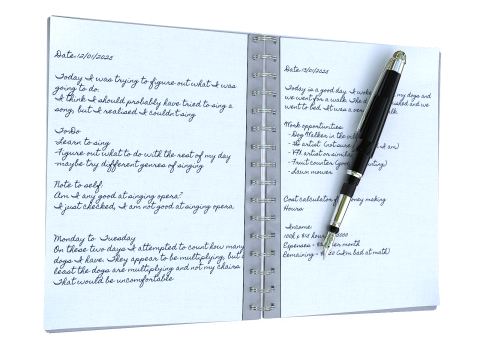 Date: 12/01/2025
Today I was trying to figure out what I was
going to do.
I think I should probably have tried to sing a
song, but I realised I couldn't sing
To:Do
-Learn to sing
-Figure out what to do with the rest of my day
-maybe try different genres of singing
Note to self:
Am I any good at singing opera?
I just checked, I am not good at singing opera
Monday to Tuesday
On these two days I attempted to count how many
dogs I have. They appear to be multiplying, but
least the dogs are multiplying and not my chairs
That would be uncomfortable
Date: 13/01/2025
Today is a good day. I woke my dogs and
we went for a walk. The and we
went to bed. It was a walk.
Work opportunities
-Dog Walker in the
artist (not sure I am)
-VFX artist or similar
-Fruit counter
-Lawn mower
Cost calculator making
Hours:
Income:
hour
Expenses = per month
Remaining = (I'm bad at math)